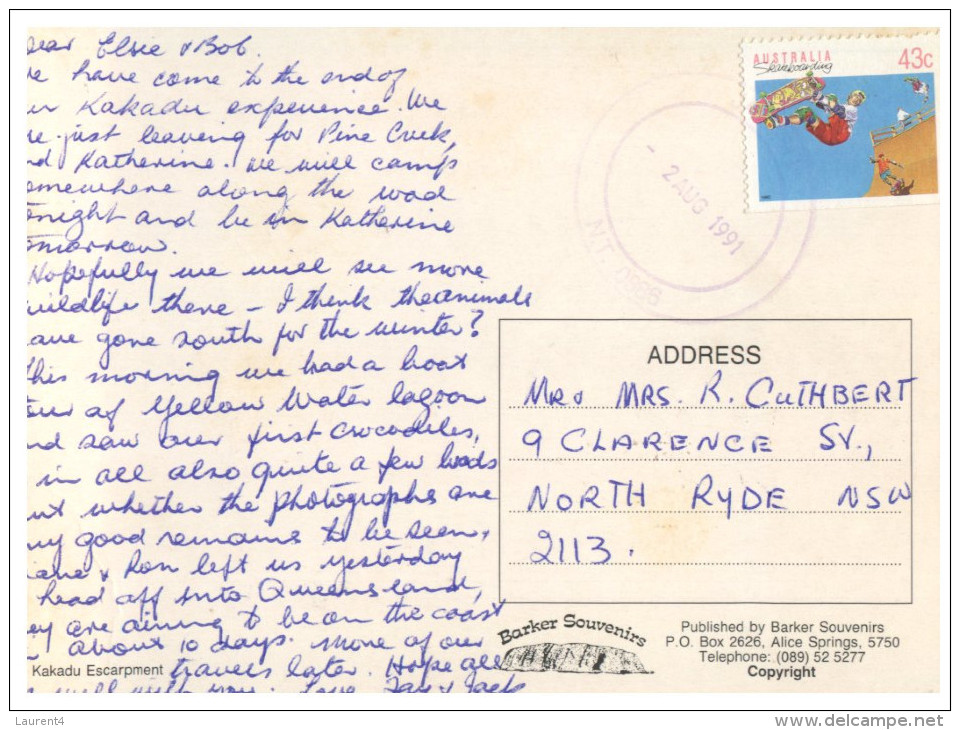 Dear Elsie & Bob.
We have come to the end of
our Kakadu experience. We
are just leaving for Pine Creek,
and Katherine. We will camp
somewhere along the road
tonight and be in Katherine
tomorrow.
Hopefully we will see more
wildlife there - I think the animals
have gone south for the winter?
This morning we had a boat
tour of Yellow Water lagoon
and saw our first crocodiles,
in all also quite a few birds
but whether the photographs are
any good remains to be seen.
& Ron left us yesterday
head off into Queensland,
they are aiming to be on the coast
about 10 days. More of our
travels later. Hope all
is well with you. Love Jay & Jack
Kakadu Escarpment
AUSTRALIA 43c
Skateboarding
- 2 AUG 1991
N.T. 0886
ADDRESS
MR & MRS. R. CUTHBERT
9 CLARENCE ST.,
NORTH RYDE NSW
2113.
Barker Souvenirs
Published by Barker Souvenirs
P.O. Box 2626, Alice Springs, 5750
Telephone: (089) 52 5277
Copyright
Laurent4
delcampe.net